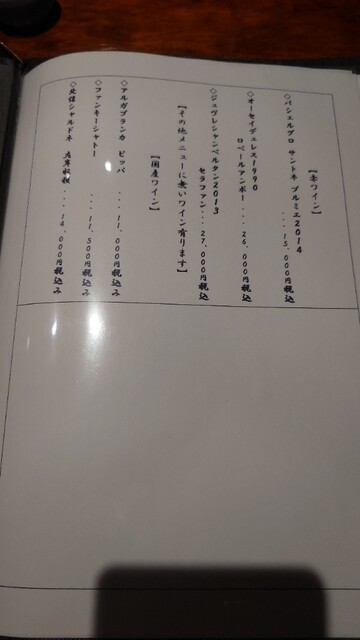 【赤ワイン】
◇バシェルグロ サントネ プルミエ2014
...15,000円税込
◇オーセイデュレス1990
ロベールアンポー...26,000円税込
◇ジュヴレシャンベルタン2013
セラファン...27,000円税込
【その他メニューに無いワイン有ります】
【国産ワイン】
◇アルガブランカ ピッパ ...11,000円税込み
◇ファンキーシャトー ...11,500円税込み
◇北信シャルドネ ...14,000円税込み